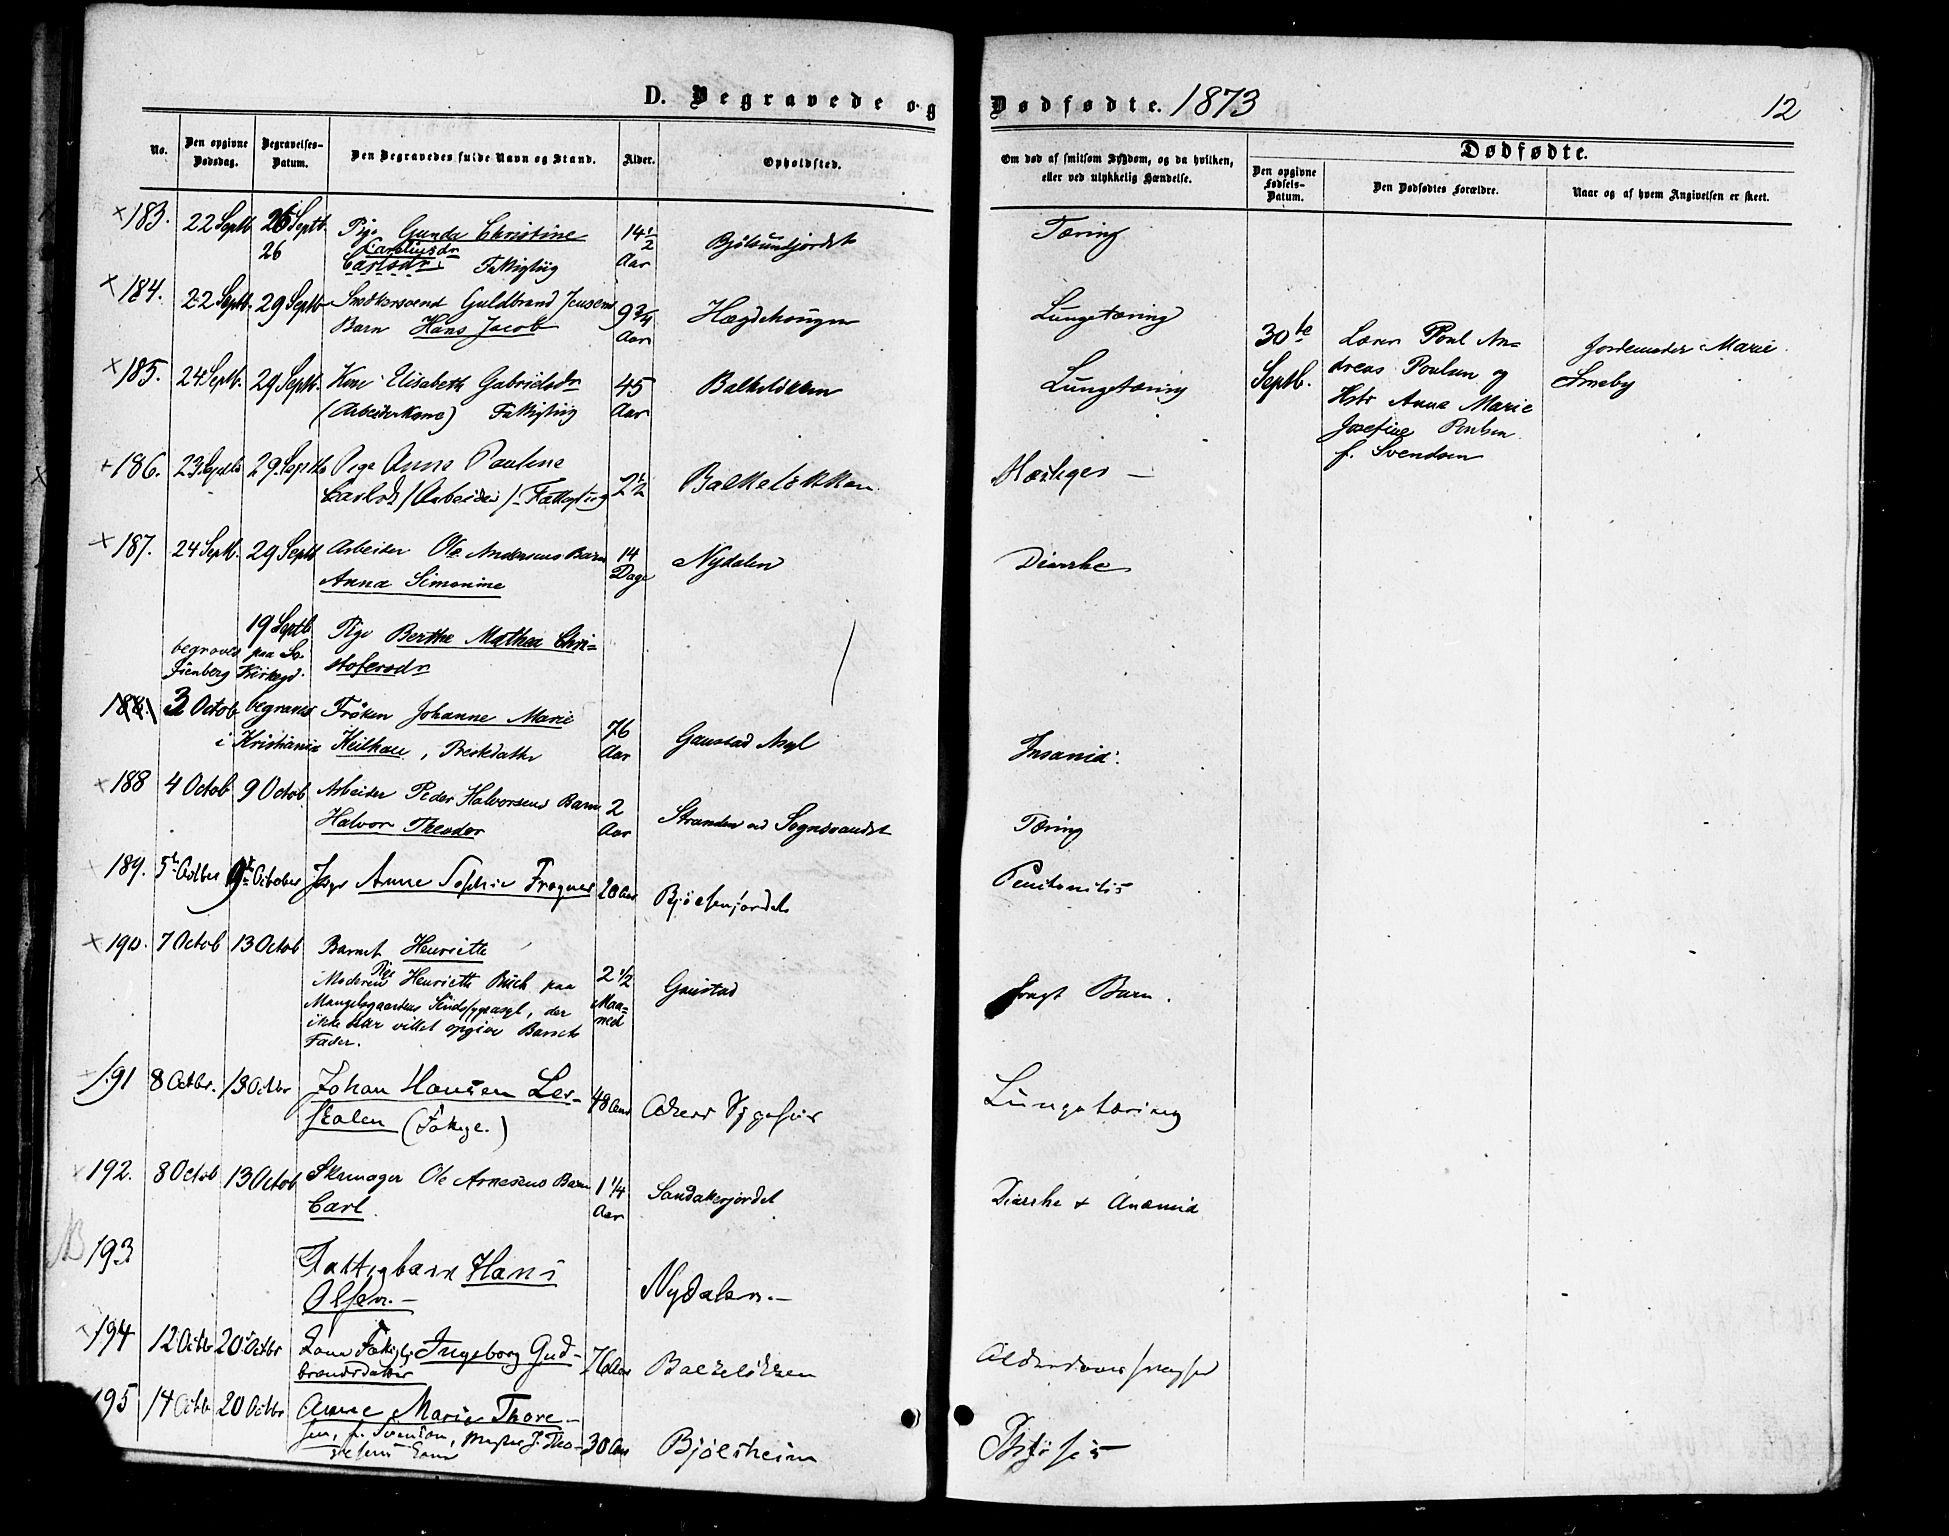 D. Begravede og Dødfødte. 1873 12
No. Den opgivne Dødsdag. Begravelses-Datum. Den Begravedes fulde Navn og Stand. Alder. Opholdsted. Om død af smitsom Sygdom, og da hvilken, eller ved ulykkelig Hændelse. Dødfødte.
Den opgivne Fødsels-Datum. Den Dødfødtes Forældre. Naar og af hvem Angivelsen er skeet.
183. 22 Septb 26 Septb. Pige Gunda Christine 14 1/2 Tæring
26 Caroliusdr Aar
Carlsdr. Fattiglig
184. 22 Septb. 29 Septb Guldbrand Jensens 9 3/4 Hægdehougen Lungetæring
Barn Hans Jacob Aar
30te Lærer Poul An- Jordemoder Marie
185. 24 Septb. 29 Septb. Kone Elisabeth Gabrielsdr 45 Balkeløkken Lungetæring Septb. dreas Poulsen og Smeby
(Arbeiderkone) Fattiglig Aar Hstr Anna Marie
Josefine Poulsen
f. Svendsen
186. 23 Septb 29. Septb Pige Anne Pauline
Carlsd (Arbeider) Fattiglig 2 1/2 Balkeløkken
187. 24 Septb. 29 Septb Arbeider Ole Andersens Barn 14 Nydalen Diarrhe
Anna Simonine Dage
19 Septb Pige Berthe Mathea Chri-
begraves paa So- stofersdr
fienberg Kirkegd.
188. 3 Octob begraves Frøken Johanne Marie 76 Gaustad Asyl Insania.
i Kristiania Keilhau, Prestedatter Aar
188 4 Octob 9 Octob Arbeider Peder Halvorsens Barn 2 Stranden ved Sognsvandet Tæring
Halvor Theodor Aar
189. 5te Octber 9de October Anne Sophie Frogner 20 Aar Bjølsenjordet
190. 7 Octob 13 Octob Barnet Henriette 2 1/2 Gaustad Svagt Barn.
Moderen Pige Henriette Buch paa Maa-
Mangelsgaardens Sindssygeasyl, der ned
ikke har villet opgive Barnets
Fader.
191 8 Octbr. 13 Octbr Johan Hansen Les- 48 Aar Akers Sygehus Lungetæring
skalen (Fattige.)
192. 8 Octob 13 Octob Skomager Ole Arnesens Barn 1 1/4 Sandakerjordet Diarrhe + Anæmia
Carl. Aar
193 Fattigbarn Hans
Olsen. Nydalen.
194 12 Octbr 20 Octbr Fattiglig Ingeborg Gud- 76 Aar Balkeløkken Alderdomssvaghed
brandsdatter
195 14 Octb 20 Octbr Anne Marie Thore-
sen, f. Svendsen, 30 Aar Bjølsheim Phthisis